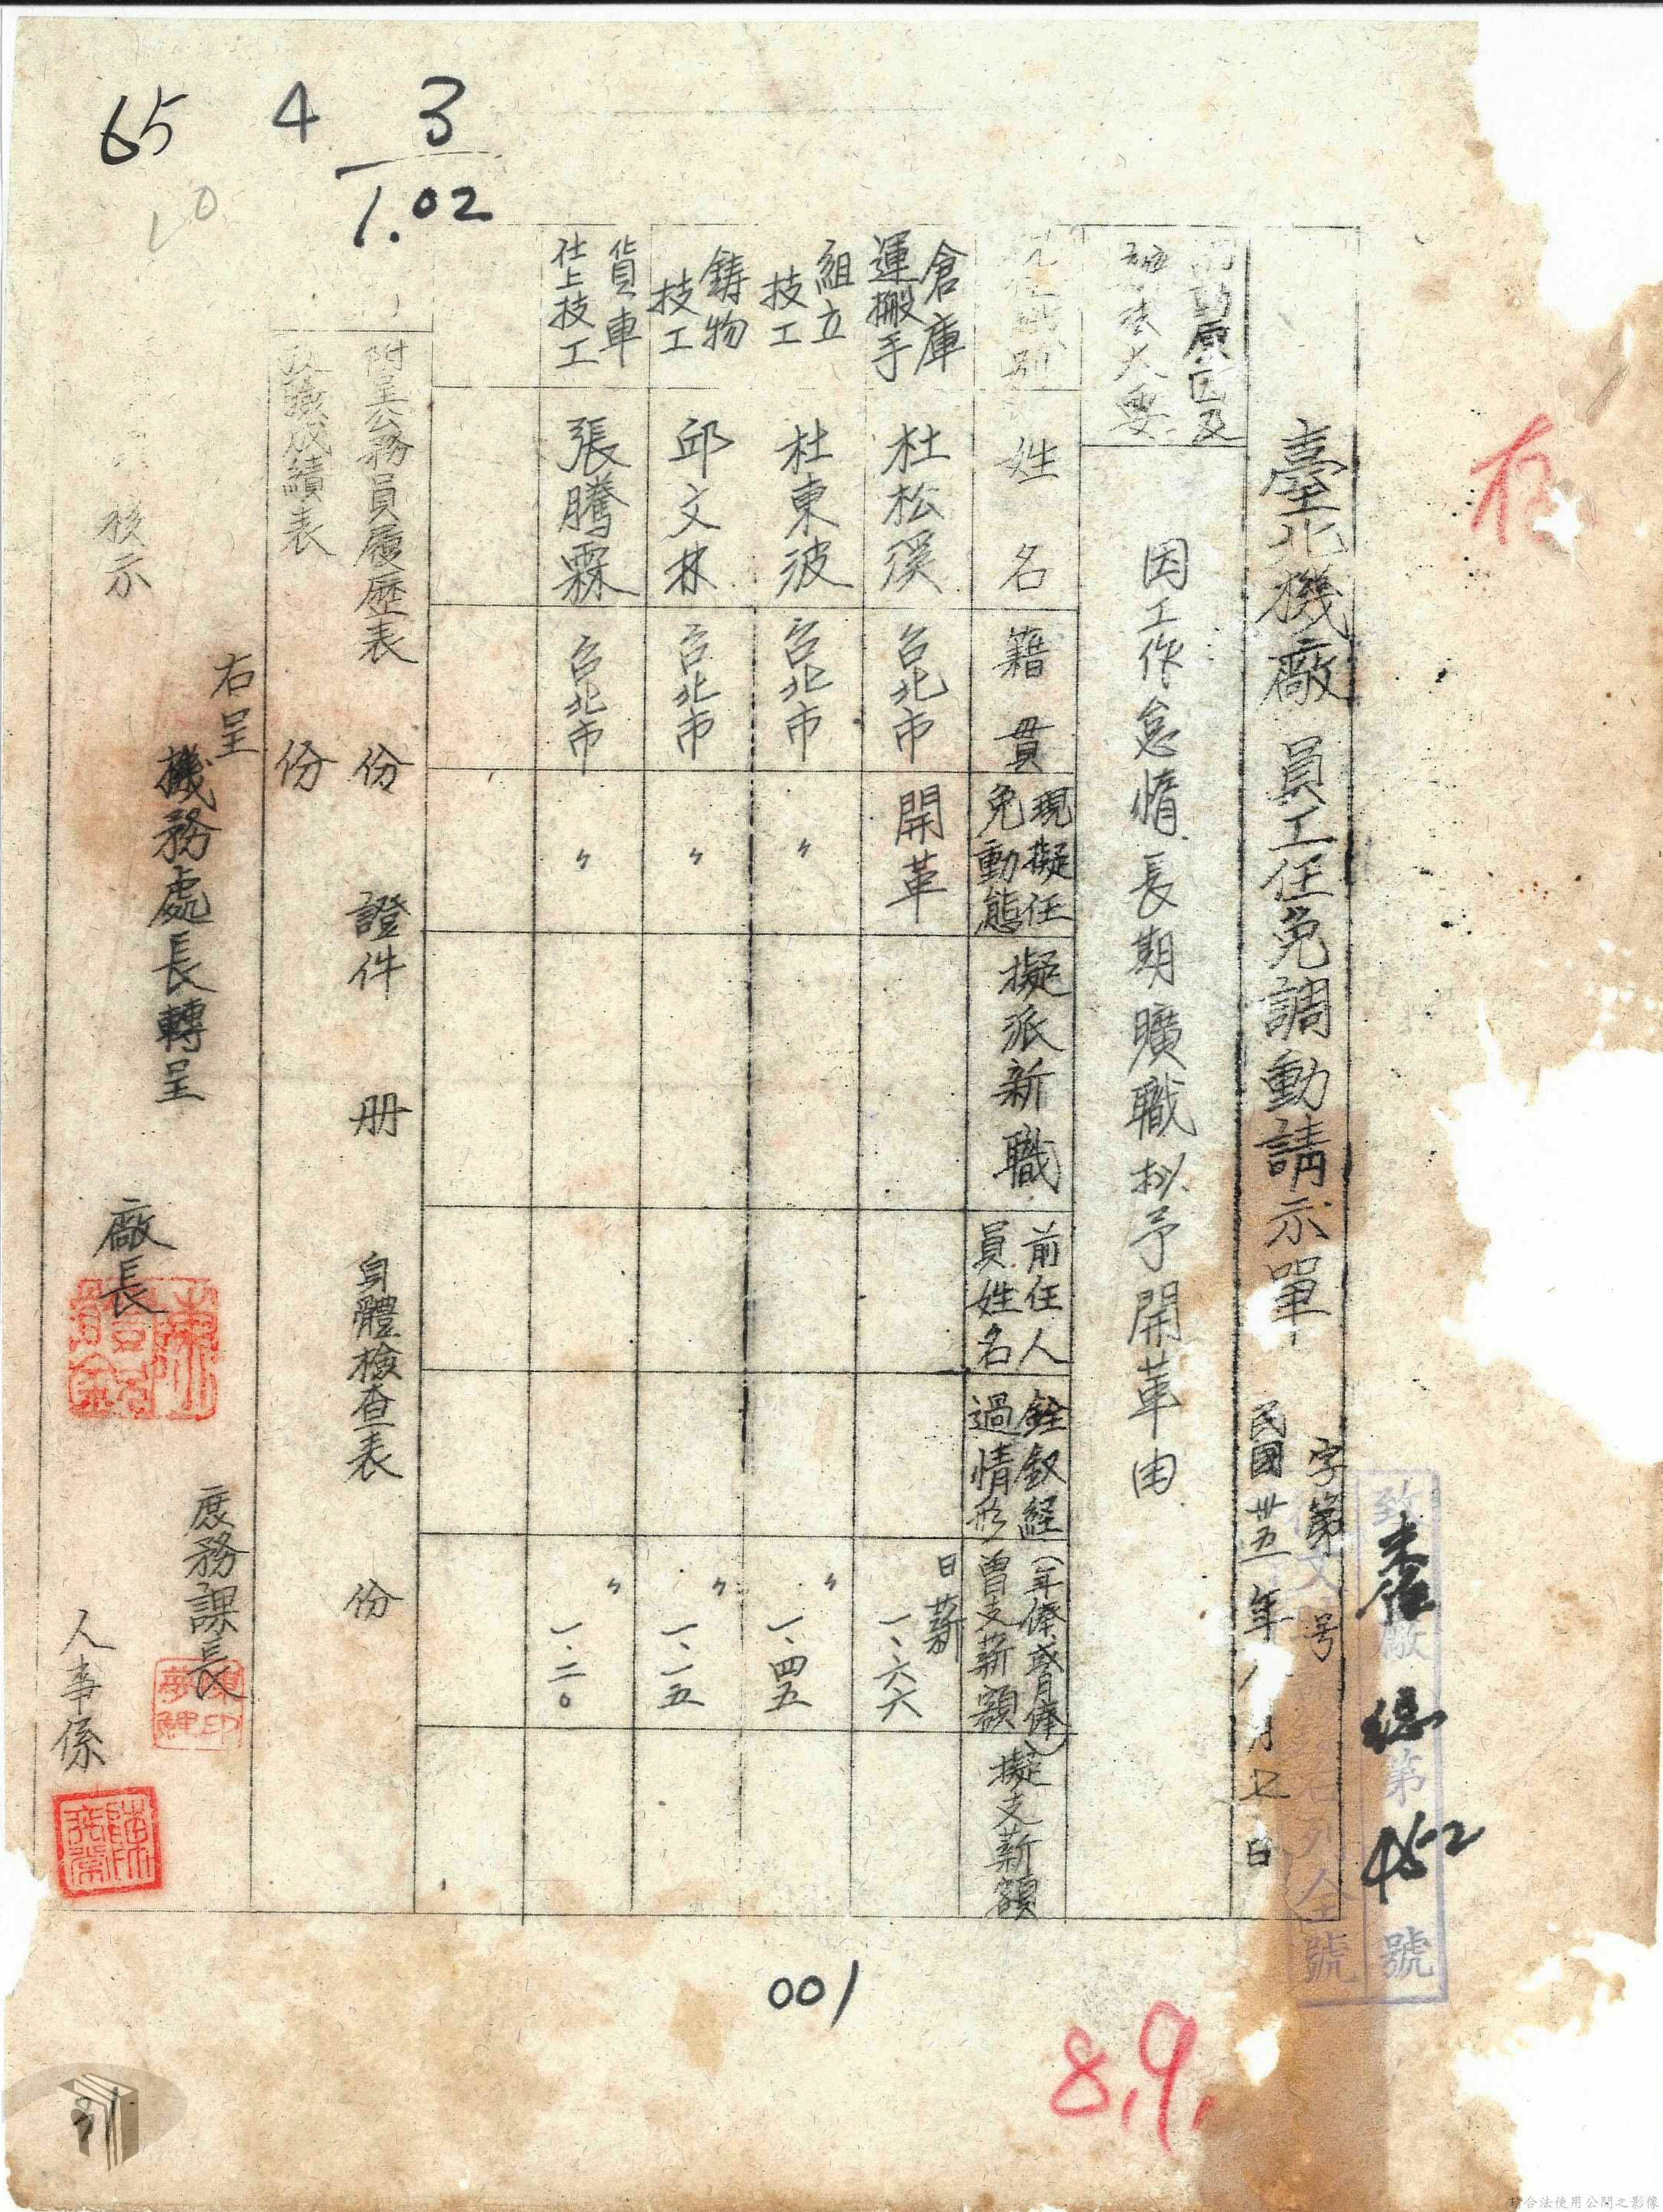 存
致
北廠
第
號
未佳
總
452
臺北機廠 員工任免調動請示單
字第 号
民國卅五年八月七日
調動原因及
辦法大要
因工作怠惰長期曠職拟予開革由
現任職別
姓名
籍貫
現擬任免動態
擬派新職
前任人員姓名
銓敘経過情形
(年俸或月俸)曾支薪額
擬支薪額
倉庫運搬手 杜松溪 台北市 開革 日薪 一、六六
組立技工 杜東波 台北市 〃 〃 一、四五
鋳物技工 邱文林 台北市 〃 〃 一、一五
貨車仕上技工 張騰霖 台北市 〃 〃 一、二〇
附呈公務員履歷表 份 證件 册 身體檢查表 份
成績表 份
右呈
機務處長轉呈
核示
廠長
庶務課長
人事係
65 4 3
1.02
001
8,9,
31
請合法使用公開之影像